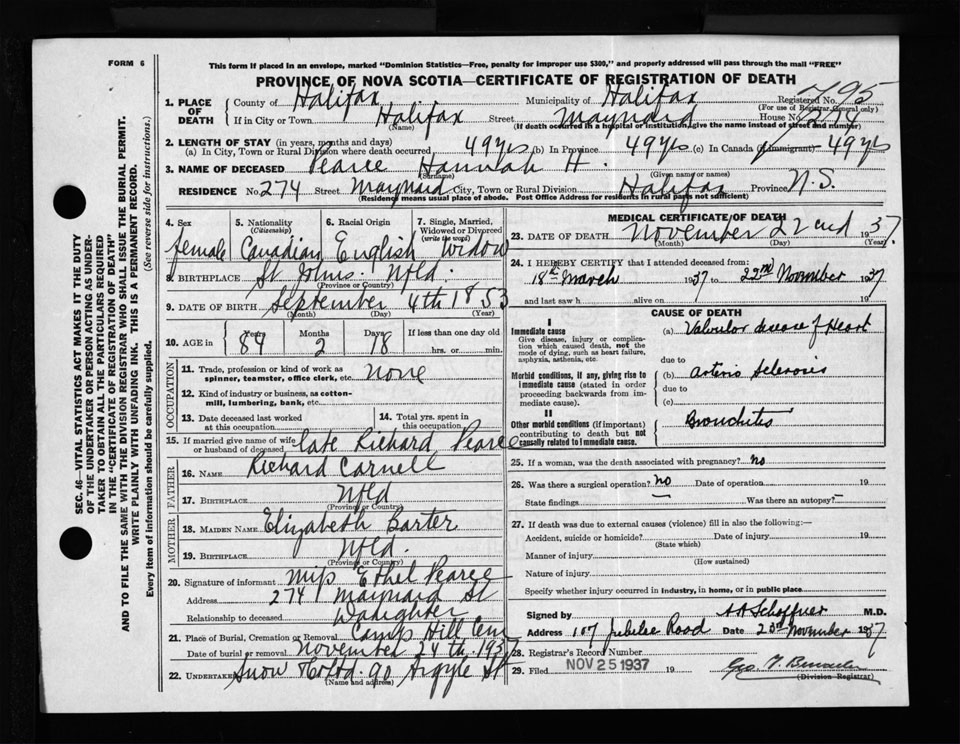 FORM 6
This form if placed in an envelope, marked "Dominion Statistics—Free, penalty for improper use $300," and properly addressed will pass through the mail "FREE"
PROVINCE OF NOVA SCOTIA—CERTIFICATE OF REGISTRATION OF DEATH
SEC. 46—VITAL STATISTICS ACT MAKES IT THE DUTY
OF THE UNDERTAKER OR PERSON ACTING AS UNDER-
TAKER TO OBTAIN ALL THE PARTICULARS REQUIRED
IN THE "CERTIFICATE OF REGISTRATION OF DEATH"
AND TO FILE THE SAME WITH THE DIVISION REGISTRAR WHO SHALL ISSUE THE BURIAL PERMIT.
WRITE PLAINLY WITH UNFADING INK. THIS IS A PERMANENT RECORD.
Every item of information should be carefully supplied. (See reverse side for instructions.)
1. PLACE OF DEATH County of Halifax Municipality of Halifax Registered No. 795
(For use of Registrar General only)
If in City or Town Halifax Street Maynard House No. 274
(Name) (If death occurred in a hospital or institution, give the name instead of street and number)
2. LENGTH OF STAY (in years, months and days)
(a) In City, Town or Rural Division where death occurred 49 yrs (b) In Province 49 yrs (c) In Canada (if immigrant) 49 yrs
3. NAME OF DECEASED Pearce Hannah H.
(Surname) (Given name or names)
RESIDENCE No. 274 Street Maynard City, Town or Rural Division Halifax Province N.S.
(Residence means usual place of abode. Post Office Address for residents in rural parts not sufficient)
4. Sex 5. Nationality 6. Racial Origin 7. Single, Married,
(Citizenship) Widowed or Divorced
(write the word)
female Canadian English Widow
8. BIRTHPLACE St Johns. Nfld.
(Province or Country)
9. DATE OF BIRTH September 4th 1853
(Month) (Day) (Year)
10. AGE in Years Months Days If less than one day old
84 2 18 hrs. or min.
OCCUPATION
11. Trade, profession or kind of work as
spinner, teamster, office clerk, etc. none
12. Kind of industry or business, as cotton-
mill, lumbering, bank, etc.
13. Date deceased last worked
at this occupation
14. Total yrs. spent in
this occupation
15. If married give name of wife
or husband of deceased late Richard Pearce
FATHER
16. NAME Richard Carnell
17. BIRTHPLACE Nfld
(Province or Country)
MOTHER
18. MAIDEN NAME Elizabeth Barter
19. BIRTHPLACE Nfld.
(Province or Country)
20. Signature of informant Miss Ethel Pearce
Address 274 Maynard St
Relationship to deceased Daughter
21. Place of Burial, Cremation or Removal Camp Hill Cem
Date of burial or removal November 24th 1937
22. UNDERTAKER Snow & Co Ltd. 90 Argyle St
(Name and address)
MEDICAL CERTIFICATE OF DEATH
23. DATE OF DEATH November 22nd 1937.
(Month) (Day) (Year)
24. I HEREBY CERTIFY that I attended deceased from:
18th March 1937 to 22nd November 1937
and last saw h alive on 19
CAUSE OF DEATH
I
Immediate cause
Give disease, injury or complica-
tion which caused death, not the
mode of dying, such as heart failure,
asphyxia, asthenia, etc.
(a) Valvular disease of Heart
due to
Morbid conditions, if any, giving rise to
immediate cause (stated in order
proceeding backwards from im-
mediate cause).
(b) Arterio Sclerosis
due to
(c)
II
Other morbid conditions (if important)
contributing to death but not
causally related to immediate cause.
Bronchitis
25. If a woman, was the death associated with pregnancy? no
26. Was there a surgical operation? no Date of operation 19
State findings Was there an autopsy? –
27. If death was due to external causes (violence) fill in also the following:—
Accident, suicide or homicide? Date of injury 19
(State which)
Manner of injury
(How sustained)
Nature of injury
Specify whether injury occurred in industry, in home, or in public place
Signed by M.D.
Address 107 Jubilee Road Date 23rd November 1937.
28. Registrar's Record Number
29. Filed NOV 25 1937 19
(Division Registrar)